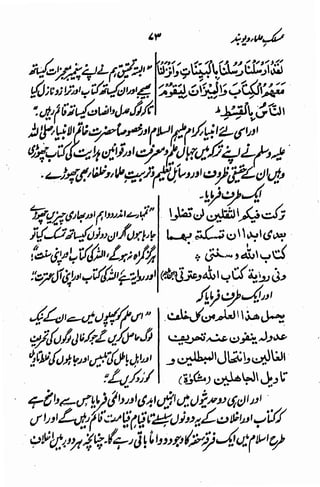 مسلک علماء دیوبند
۷۳
لَقَدْ اَرْسَلْنَا رُسُلَنَا بِالْبَيِّنَاتِ وَاَنْزَلْنَا
مَعَهُمُ الْكِتَابَ وَالْمِيْزَانَ لِيَقُوْمَ
النَّاسُ بِالْقِسْطِ
"البتہ تحقیق ہم نے اپنے سفیر معجزات کیساتھ
بھیجے اور ان کیساتھ کتاب اور ترازو نازل کیا
تاکہ لوگ عدل و انصاف کیساتھ قائم رہیں"
اور اسی لئے انبیاء کرام علیہم السلام اور خصوصاً حضرت خاتم الانبیاء صلی اللہ
علیہ وسلم نے اپنے ترکہ میں جہاں علم و معرفت اور قوانین ہدایت کی کتاب چھوڑی
وہیں ان کے حقیقی ظروف اور وسائل تعلیم و تربیت علماء و خلفاء بھی چھوڑے۔
ایک طرف فرمایا۔
تركت فيكم الثقلين لن تضلوا
بعدى ابدا ان تمسكتم بهما
كتاب الله وسنتى ؞
وفى رواية كتاب الله وعترتى
"تمہارے اندر دو اہم اور بھاری چیزیں چھوڑے
جا رہا ہوں اگر ان دونوں کیساتھ تمسک کیا تو
ہرگز گمراہ نہ ہوگے، اللہ کی کتاب اور اپنی سنت"؛
اور روایت ہے اللہ کی کتاب اور اپنی آل عترت؛
اور ایک طرف فرمایا کہ
يحمل هذا العلم من كل خلف
عدوله ينفون عنه تحريف
الغالين وانتحال المبطلين و
تاويل الجاهلين (مشكوة)
"اس علم کو پچھلوں میں سے ان کے نیک
لوگ حاصل کریں گے جو کہ غالی لوگوں کی تحریف
اور اہل باطل کی تلبیس اور جاہلوں کی غلط تاویل
کو رد کریں گے"
اور ان ہی دو حدیثوں میں انہیں ابدی اور دائمی فرمایا جس سے واضح ہے
کہ کتاب اور اخلاف کے دونوں سلسلے تا قیام قیامت قائم رہیں گے اور اس
طرح اسلام میں ایک فرقہ حقہ کا وجود دواماً باقی رہے گا۔ چنانچہ ہر دور میں اخلاف